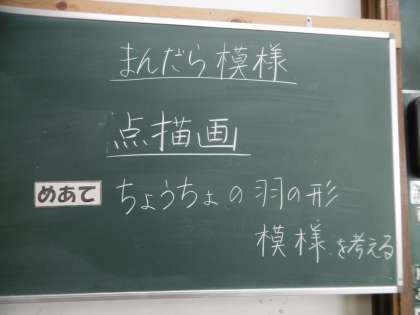 まんだら模様
点描画
めあて ちょうちょの羽の形
模様を考える